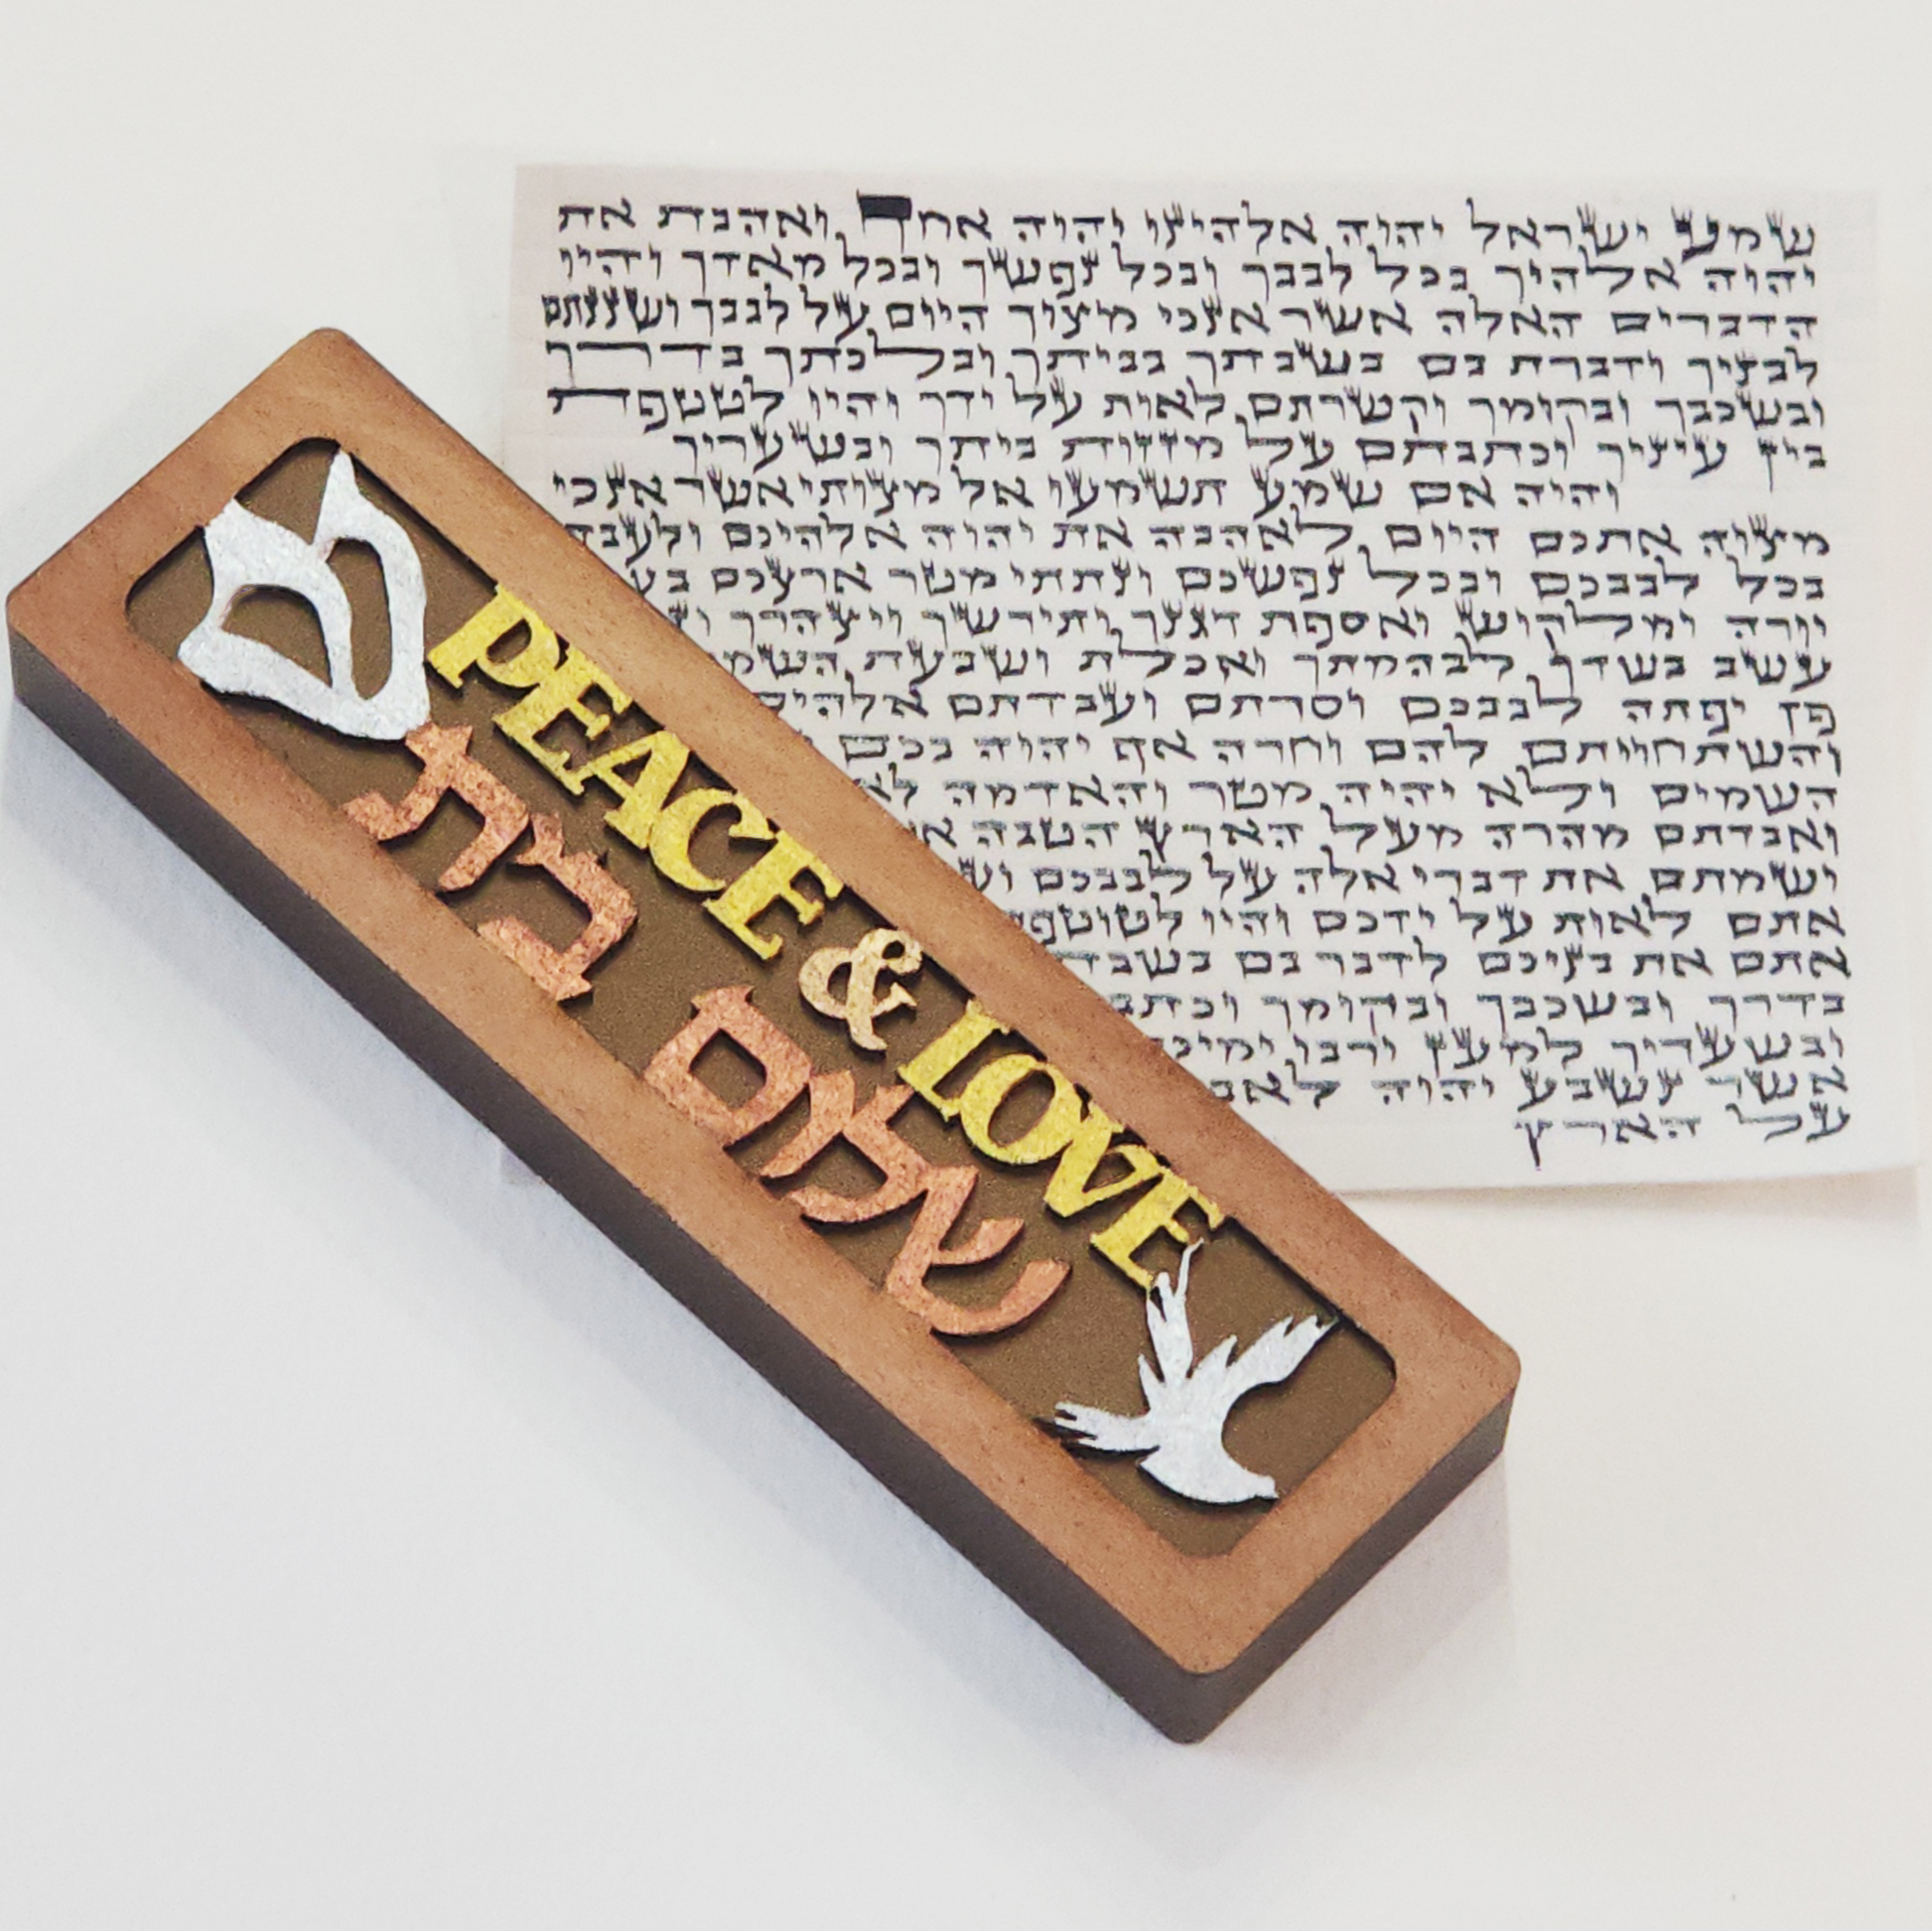 שמע ישראל יהוה אלהינו יהוה אחד ואהבת את
יהוה אלהיך בכל לבבך ובכל נפשך ובכל מאדך והיו
הדברים האלה אשר אנכי מצוך היום על לבבך ושננתם
לבניך ודברת בם בשבתך בביתך ובלכתך בדרך
ובשכבך ובקומך וקשרתם לאות על ידך והיו לטטפת
בין עיניך וכתבתם על מזזות ביתך ובשעריך
והיה אם שמע תשמעו אל מצותי אשר אנכי
מצוה אתכם היום לאהבה את יהוה אלהיכם ולעבדו
בכל לבבכם ובכל נפשכם ונתתי מטר ארצכם
יורה ומלקוש ואספת דגנך ותירשך ויצהרך
עשב בשדך לבהמתך ואכלת ושבעת
פן יפתה לבבכם וסרתם ועבדתם
והשתחויתם להם וחרה אף יהוה בכם
השמים ולא יהיה מטר והאדמה
ואבדתם מהרה מעל הארץ הטבה
ושמתם את דברי אלה על לבבכם
אתם לאות על ידכם והיו
אתם את בניכם לדבר בם
בדרך ובשכבך ובקומך
ובשעריך למען ירבו
אשר נשבע יהוה
על הארץ
ש
PEACE & LOVE
שלום בית